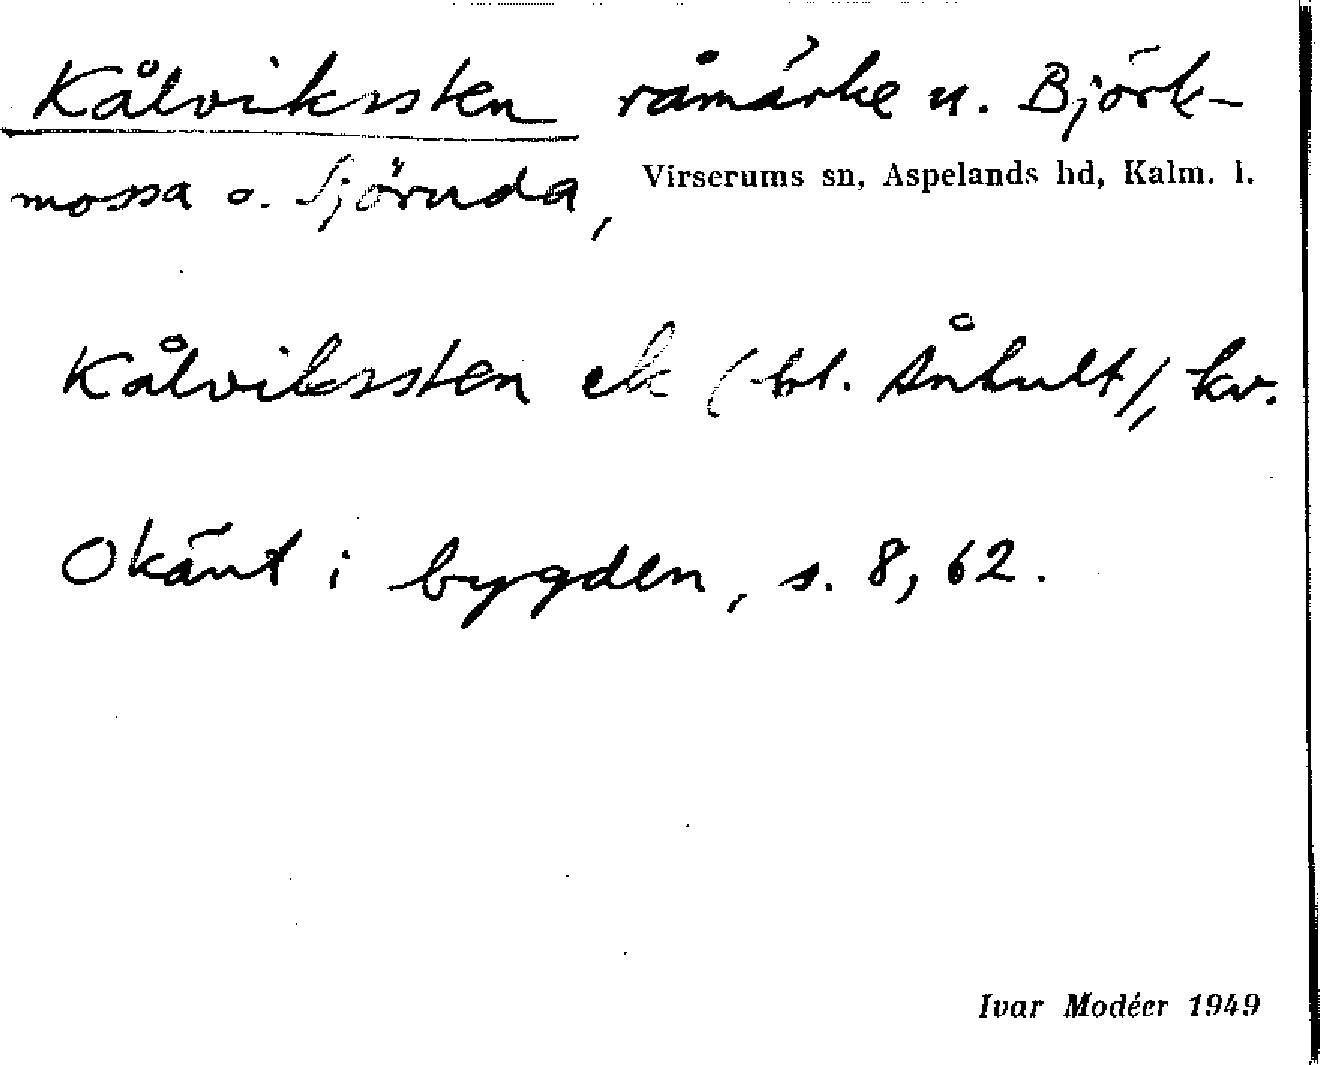 Kålvikssten råmärke u. Björk-
mossa o. Sjöruda,
Virserums sn, Aspelands hd, Kalm. l.
Kålvikssten ek (bl. Århult), kv.
Okänt i bygden, s. 8, 62.
Ivar Modéer 1949